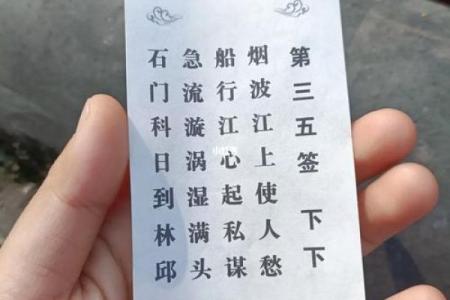 第三五签 下下
烟波江上使人愁
船行江心起私谋
急流漩涡湿满头
石门科日到林邱